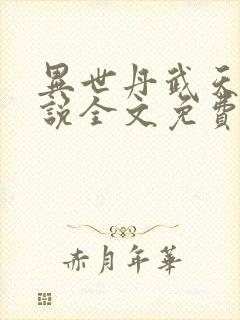 異世丹武天
說全文免費
赤月年華